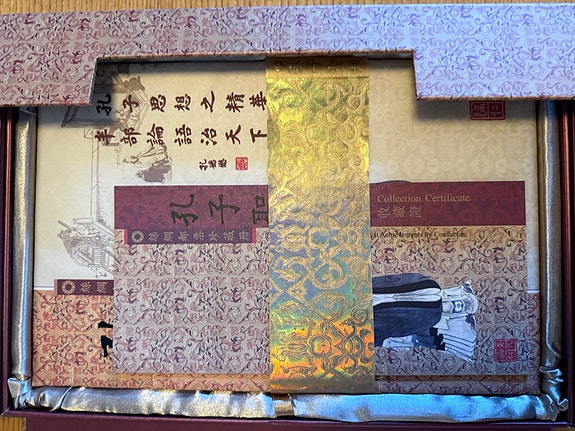 孔子思想之精華
半部論語治天下
孔子
絲綢郵票珍藏冊
Collection Certificate
收藏證
Achievements by Confucius
絲綢